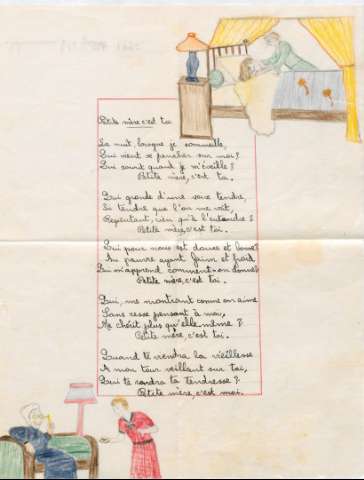 Petite mère, c'est toi
La nuit, lorsque je sommeille,
Qui vient se pencher sur moi?
Qui sourit quand je m'éveille?
Petite mère, c'est toi.
Qui gronde d'une voix tendre,
Si tendre que l'on me voit,
Repentant, rien qu'à l'entendre?
Petite mère, c'est toi.
Qui pour nous est douce et bonne?
Au pauvre ayant faim et froid
Qui m'apprend comment on donne?
Petite mère, c'est toi.
Qui, me montrant comme on aime
Sans cesse pensant à moi,
Me chérit plus qu'elle-même?
Petite mère, c'est toi.
Quand te viendra la vieillesse
A mon tour veillant sur toi,
Qui te rendra ta tendresse?
Petite mère, c'est moi.